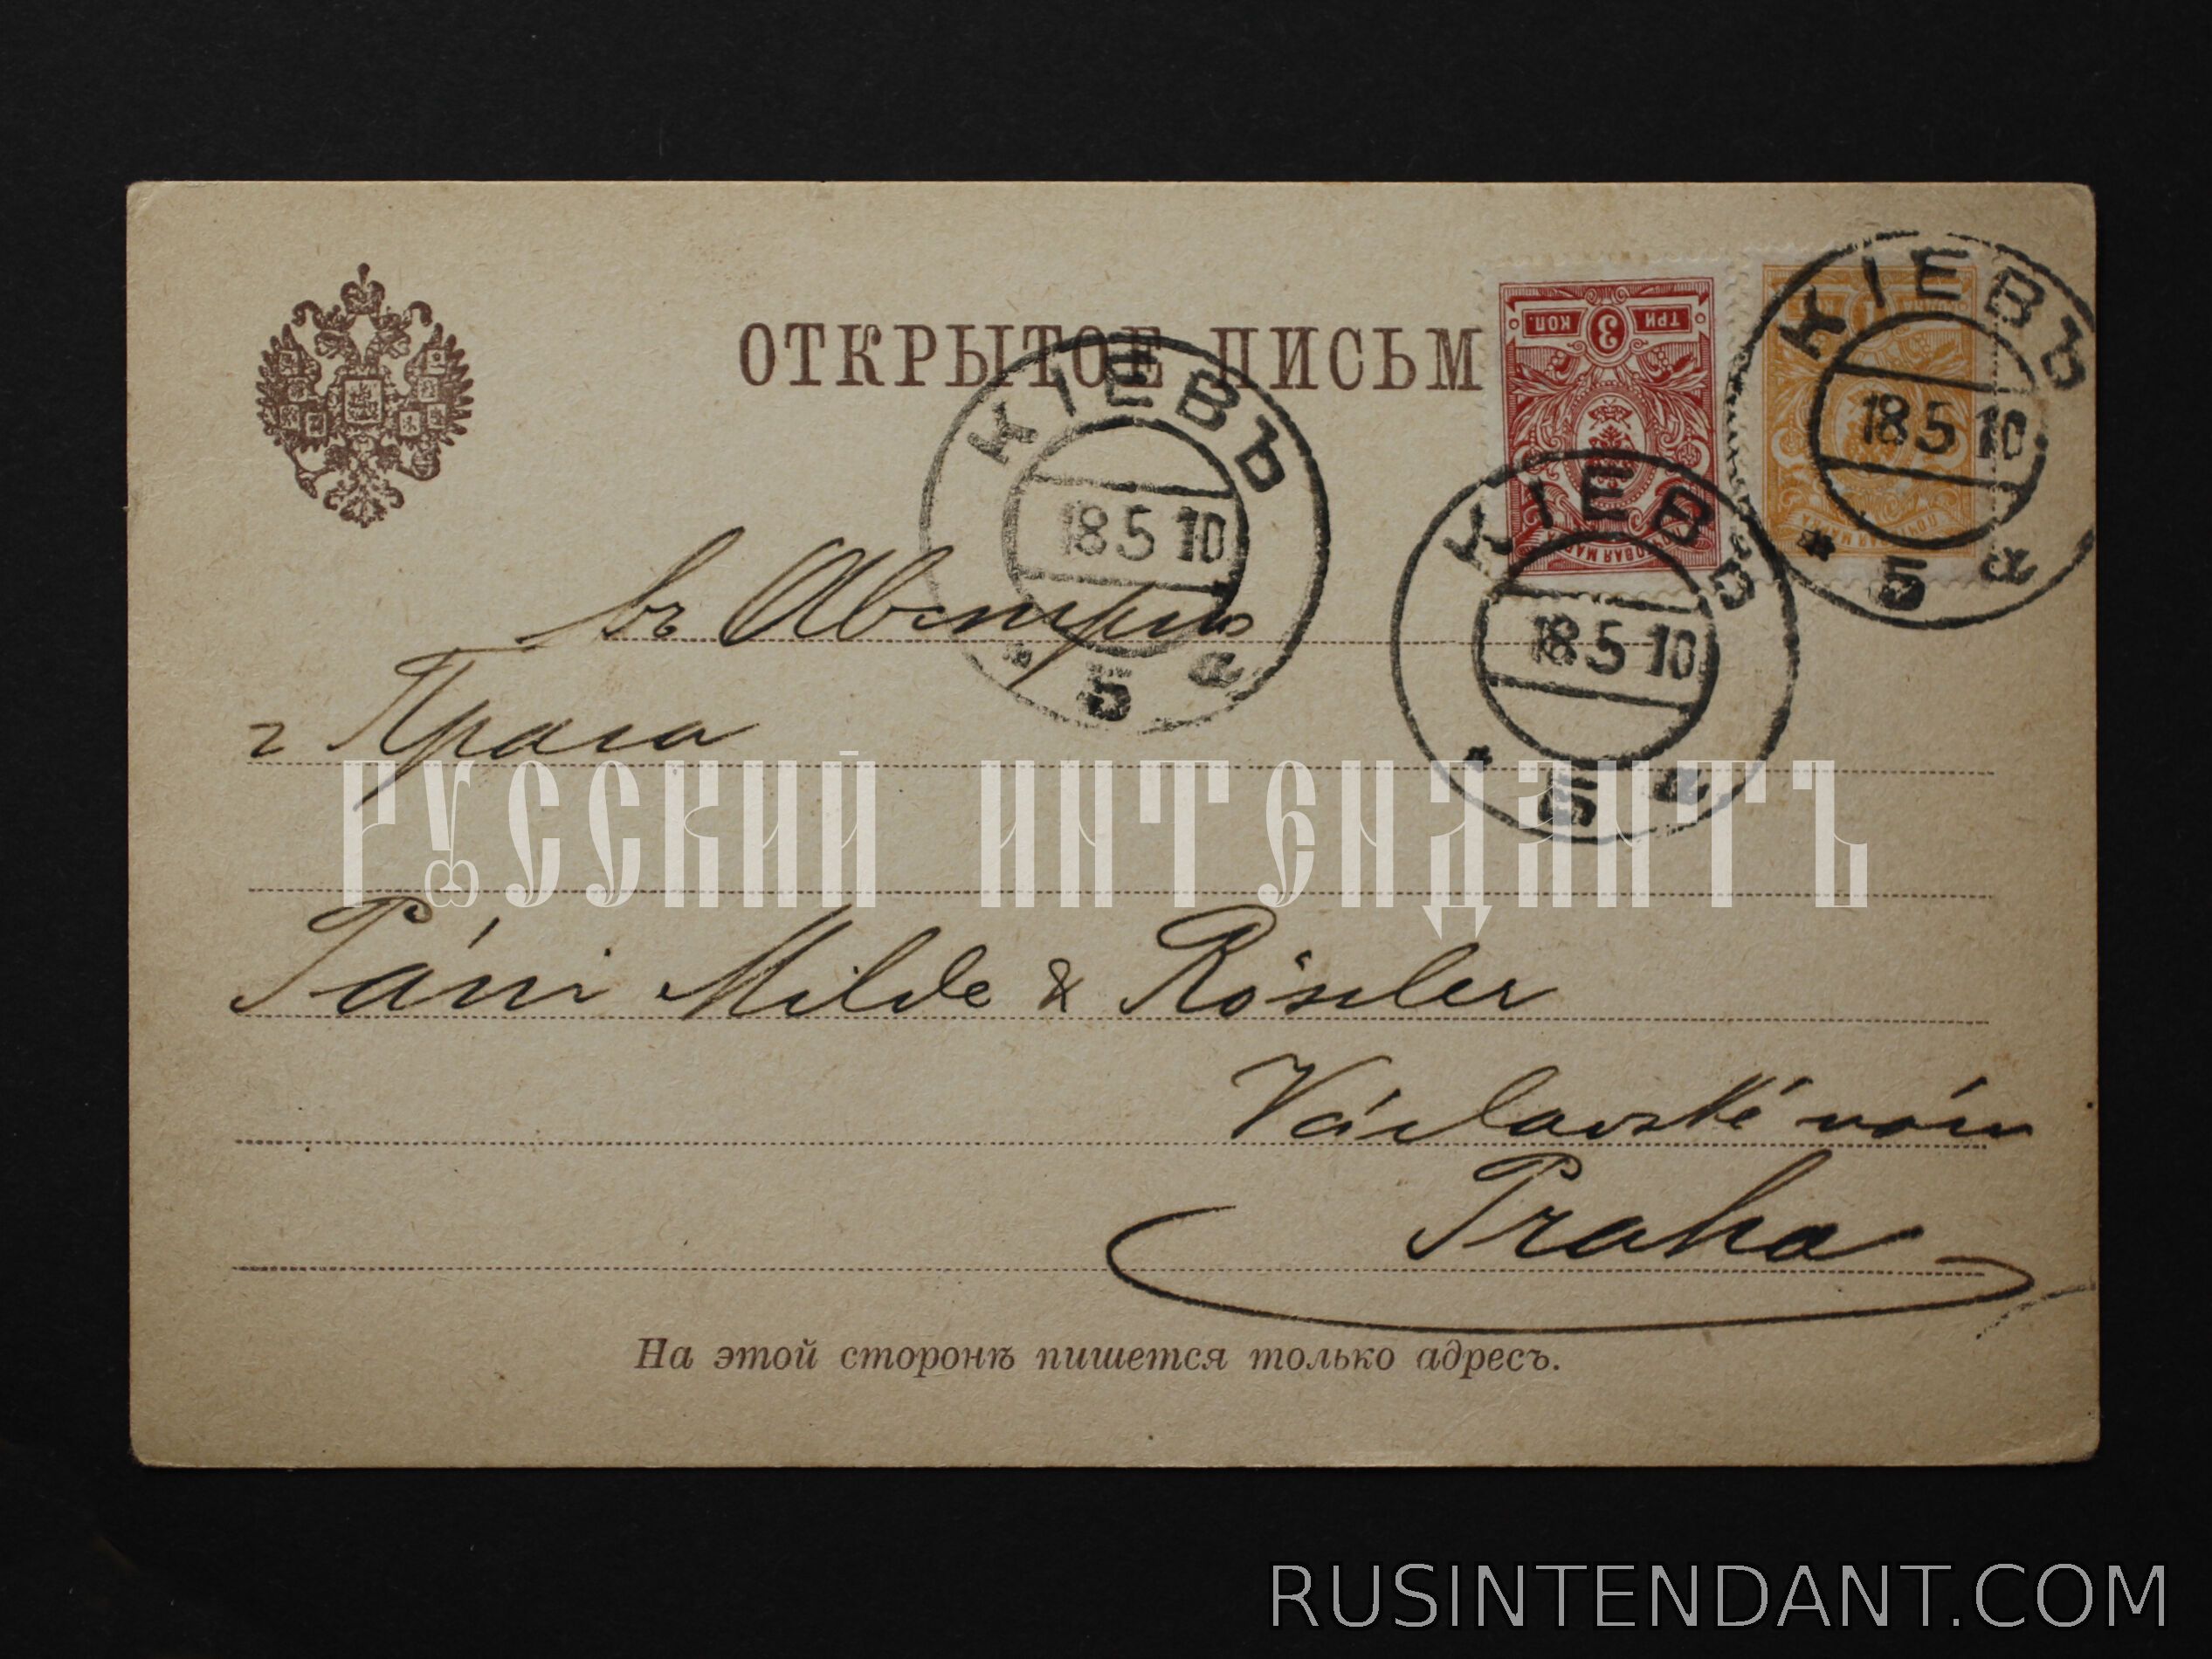 ОТКРЫТОЕ ПИСЬМ
ТРИ 3 КОП.
ПОЧТОВАЯ МАРКА
КІЕВЪ
18 5 10
* 5 а
КІЕВЪ
18 5 10
* 5 а
КІЕВЪ
18 5 10
* 5 а
въ Австрію
г Прага
РУССКИЙ ИНТЕНДАНТЪ
Páni Milde & Rössler
Václavské nám
Praha
На этой сторонѣ пишется только адресъ.
RUSINTENDANT.COM